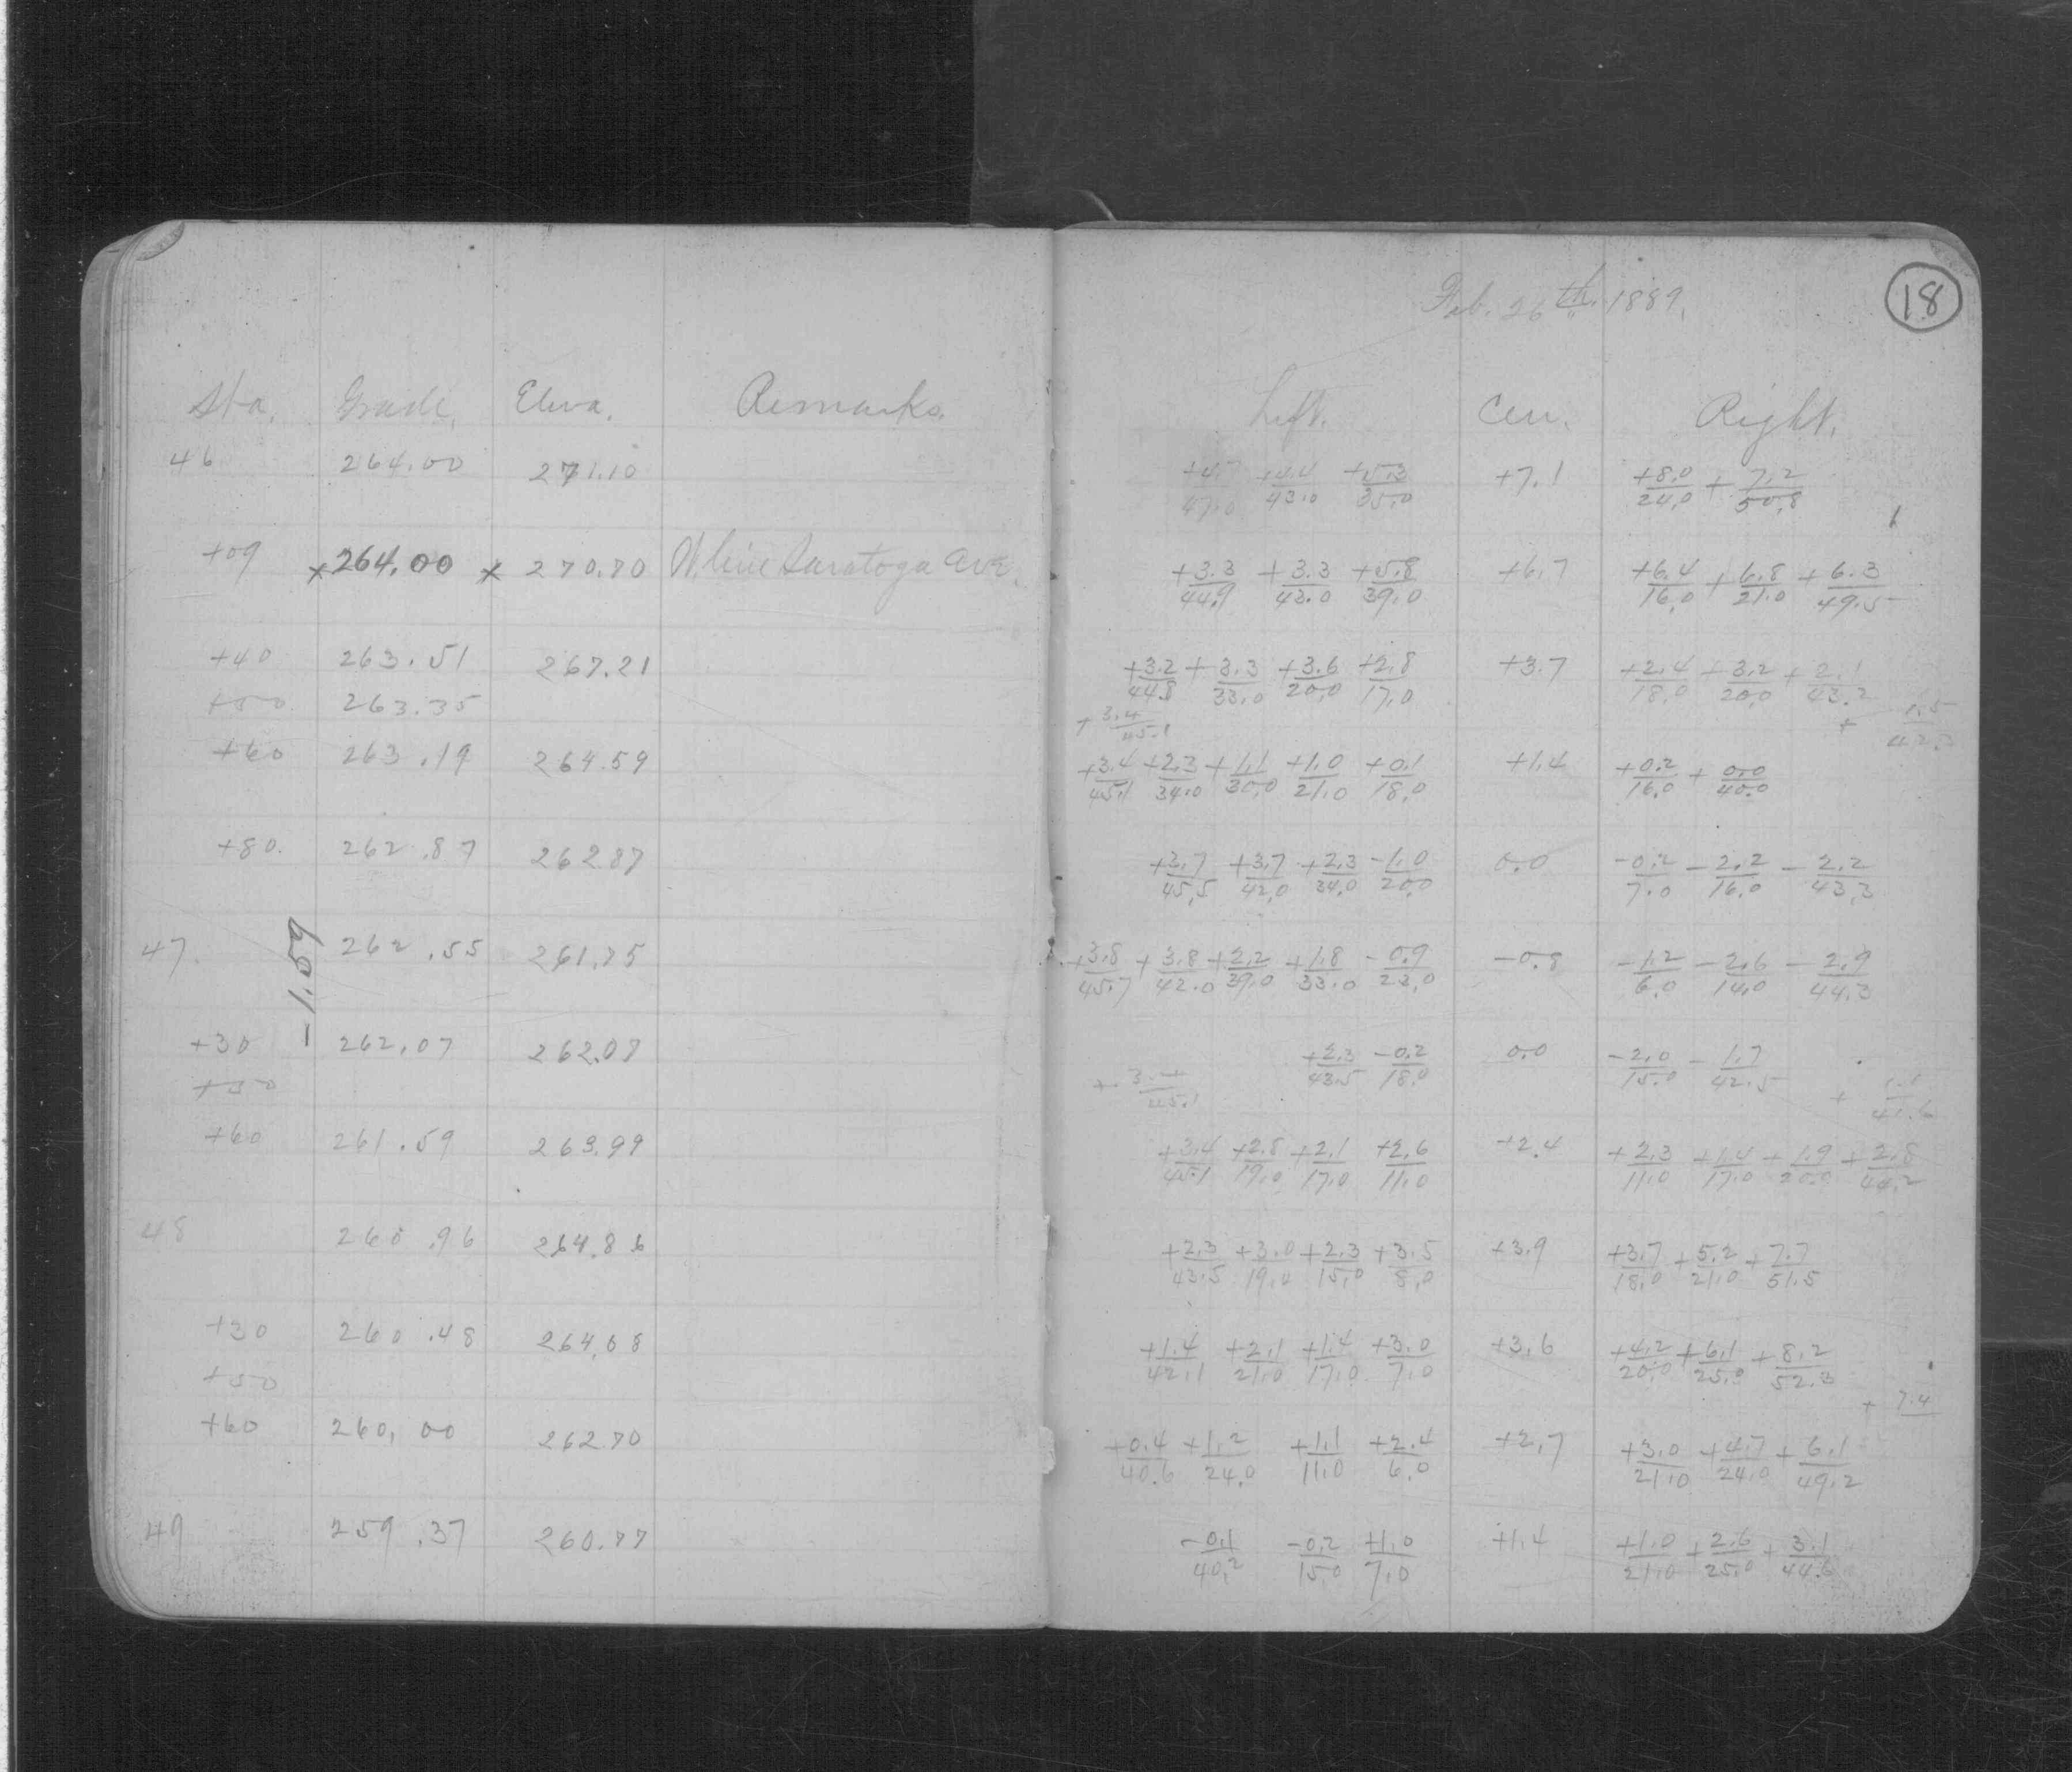 Feb. 26th. 1889.
18
Sta. Grade. Eleva. Remarks. Left. Cen. Right.
46 264.00 271.10 +4.7/47.0 +4.4/43.0 +5.3/35.0 +7.1 +8.0/24.0 +7.2/50.8
+09 x 264.00 x 270.70 N. line Saratoga Ave. +3.3/44.9 +3.3/43.0 +5.8/39.0 +6.7 +6.4/16.0 +6.8/21.0 +6.3/49.5
+40 263.51 267.21 +3.2/44.8 +3.3/33.0 +3.6/20.0 +2.8/17.0 +3.7 +2.4/18.0 +3.2/20.0 +2.1/43.2
+50 263.35 +3.4/45.1 +1.5/42.3
+60 263.19 264.59 +3.4/45.1 +2.3/34.0 +1.1/30.0 +1.0/21.0 +0.1/18.0 +1.4 +0.2/16.0 +0.0/40.0
+80. 262.87 262.87 +3.7/45.5 +3.7/42.0 +2.3/34.0 -1.0/20.0 0.0 -0.2/7.0 -2.2/16.0 -2.2/43.3
-1.59
47. 262.55 261.75 +3.8/45.7 +3.8/42.0 +2.2/39.0 +1.8/33.0 -0.9/23.0 -0.8 -1.2/6.0 -2.6/14.0 -2.9/44.3
+30 262.07 262.07 +2.3/43.5 -0.2/18.0 0.0 -2.0/15.0 -1.7/42.5
+50 +3.4/45.1 +1.1/41.6
+60 261.59 263.99 +3.4/45.1 +2.8/19.0 +2.1/17.0 +2.6/11.0 +2.4 +2.3/11.0 +1.4/17.0 +1.9/20.0 +2.8/44.2
48 260.96 264.86 +2.3/43.5 +3.0/19.0 +2.3/15.0 +3.5/8.0 +3.9 +3.7/18.0 +5.2/21.0 +7.7/51.5
+30 260.48 264.08 +1.4/42.1 +2.1/21.0 +1.4/17.0 +3.0/7.0 +3.6 +4.2/20.0 +6.1/25.0 +8.2/52.3
+50 +7.4
+60 260.00 262.70 +0.4/40.6 +1.2/24.0 +1.1/11.0 +2.4/6.0 +2.7 +3.0/21.0 +4.7/24.0 +6.1/49.2
49 259.37 260.77 -0.1/40.2 -0.2/15.0 +1.0/7.0 +1.4 +1.0/21.0 +2.6/25.0 +3.1/44.6